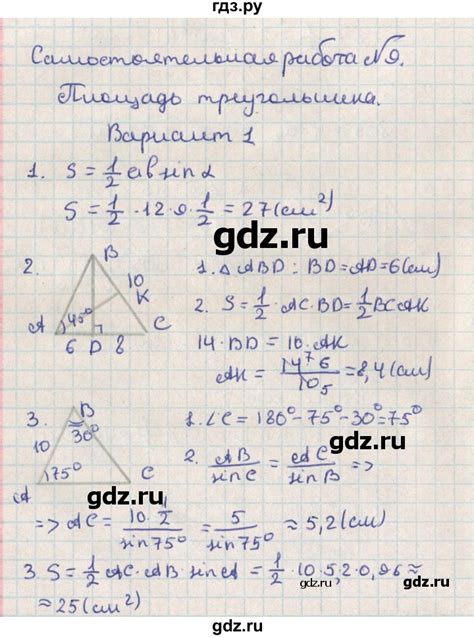 гдз.ру
Самостоятельная работа №9.
Площадь треугольника.
Вариант 1
1. S = 1/2 ab sin α
S = 1/2 · 12 · 9 · 1/2 = 27 (см²)
gdz.ru
2.
B
10
K
A
45°
C
6 D 8
1. △ ABD : BD = AD = 6 (см)
2. S = 1/2 · AC · BD = 1/2 BC · AK
14 · BD = 10 · AK
AK = 14⁷ 6 / 10₅ = 8,4 (см)
gdz.ru
3.
B
30°
10
75°
A
C
1. ∠C = 180° - 75° - 30° = 75°
2. AB / sin C = AC / sin B =>
gdz.ru
=> AC = 10 · 1/2 / sin 75° = 5 / sin 75° ≈ 5,2 (см)
3. S = 1/2 AC · AB · sin A = 1/2 · 10 · 5,2 · 0,96 ≈
≈ 25 (см²)
gdz.ru